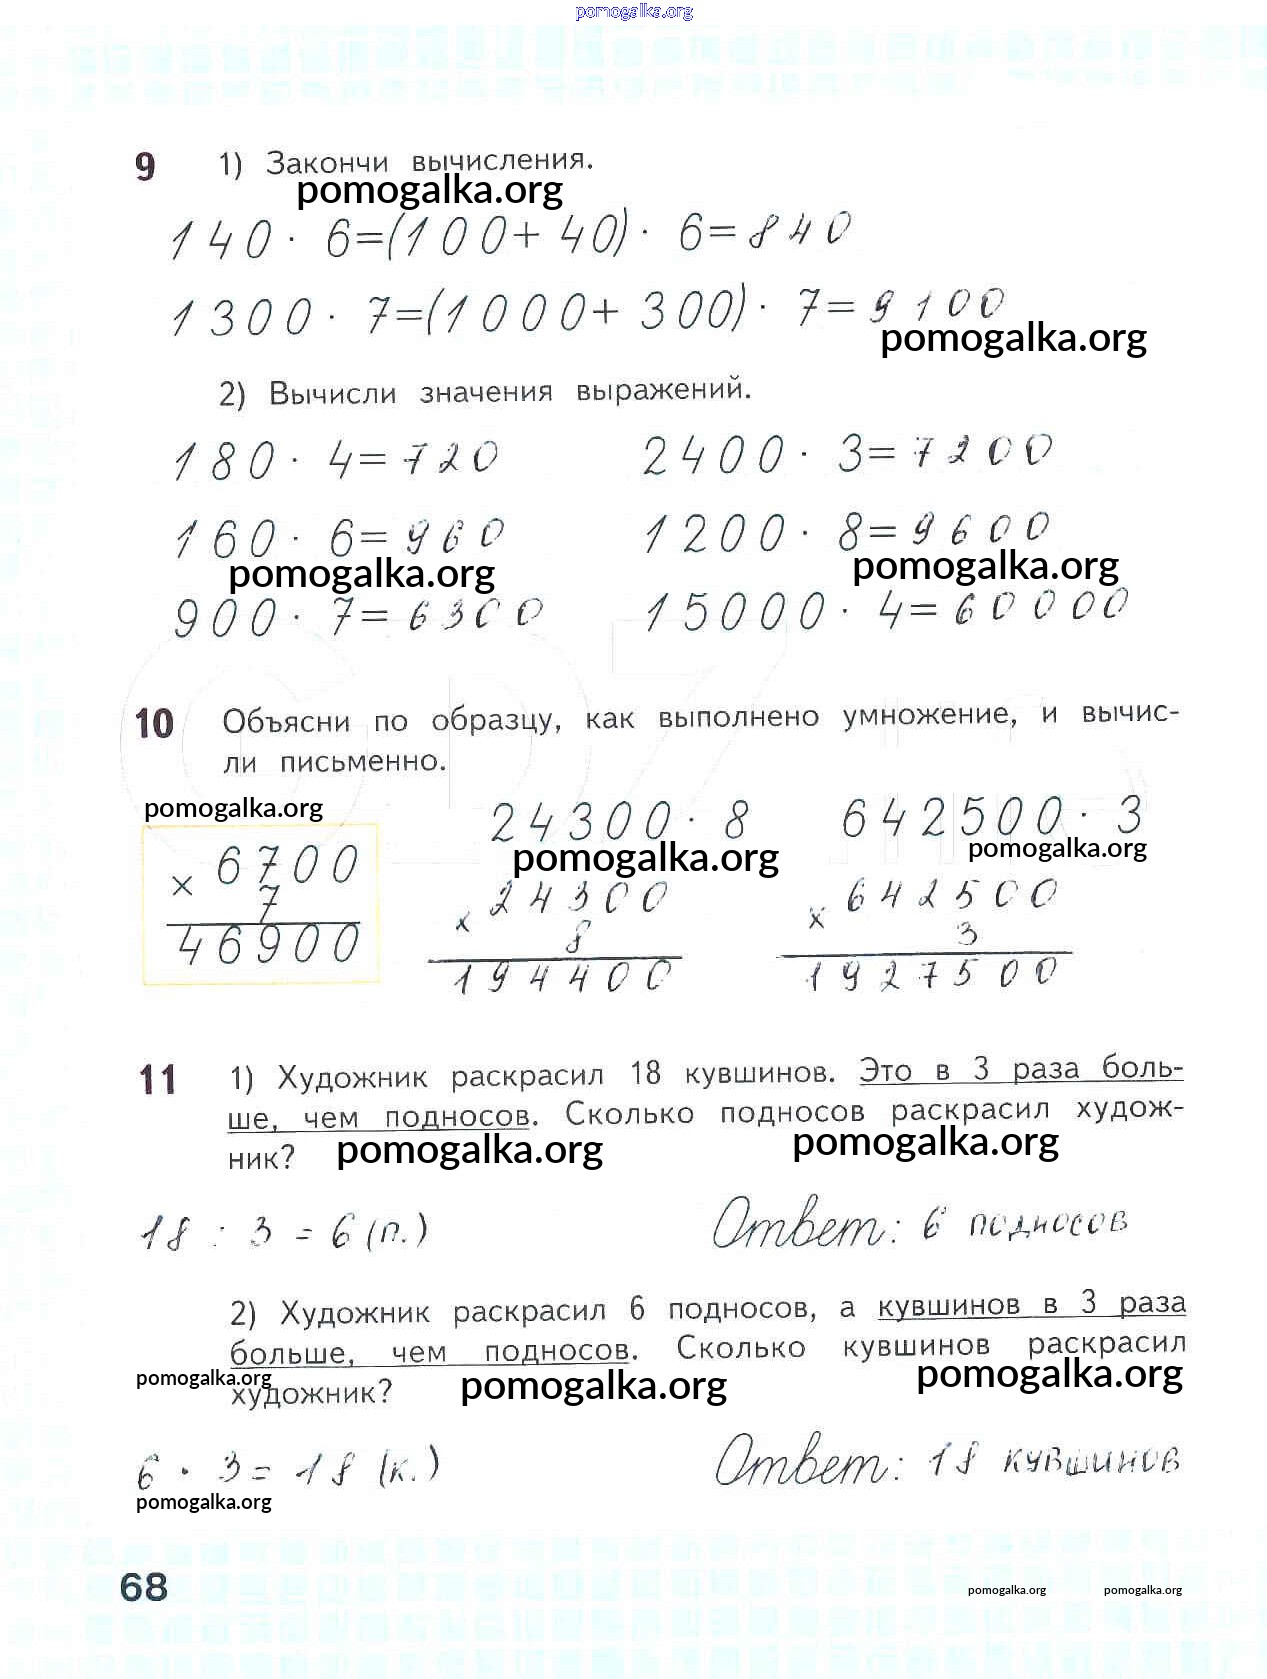 pomogalka.org
9 1) Закончи вычисления.
pomogalka.org
140 · 6=(100+ 40) · 6=840
1300 · 7=(1000+ 300) · 7=9100
pomogalka.org
2) Вычисли значения выражений.
180 · 4=720 2400 · 3=7200
160 · 6=960 1200 · 8=9600
pomogalka.org pomogalka.org
900 · 7=6300 15000 · 4=60000
10 Объясни по образцу, как выполнено умножение, и вычис-
ли письменно.
pomogalka.org
24300 · 8 642500 · 3
pomogalka.org pomogalka.org
× 6700 × 24300 × 642500
7 8 3
46900 194400 1927500
11 1) Художник раскрасил 18 кувшинов. Это в 3 раза боль-
ше, чем подносов. Сколько подносов раскрасил худож-
ник? pomogalka.org pomogalka.org
18 : 3 = 6 (п.) Ответ: 6 подносов
2) Художник раскрасил 6 подносов, а кувшинов в 3 раза
больше, чем подносов. Сколько кувшинов раскрасил
pomogalka.org pomogalka.org pomogalka.org
художник?
6 · 3 = 18 (к.) Ответ: 18 кувшинов
pomogalka.org
68 pomogalka.org pomogalka.org